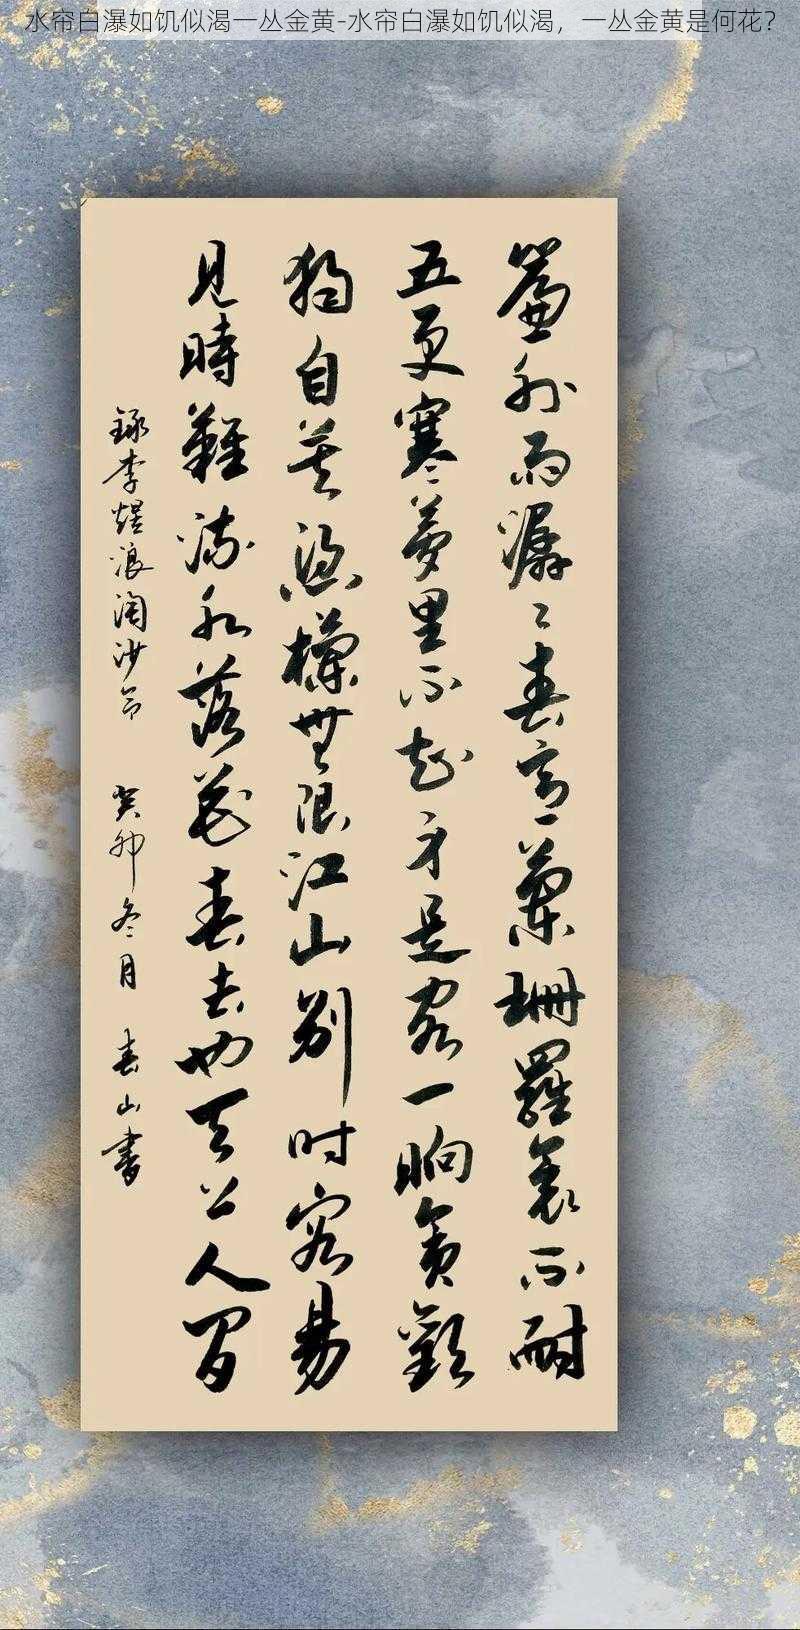 水帘白瀑如饥似渴一丛金黄-水帘白瀑如饥似渴，一丛金黄是何花？
簾外雨潺〻春意蘭珊羅衾不耐
五更寒夢里不知身是客一晌貪歡
獨自莫憑欄無限江山別时容易
見時難流水落花春去也天上人間
錄李煜浪淘沙令 癸卯冬月 春山書